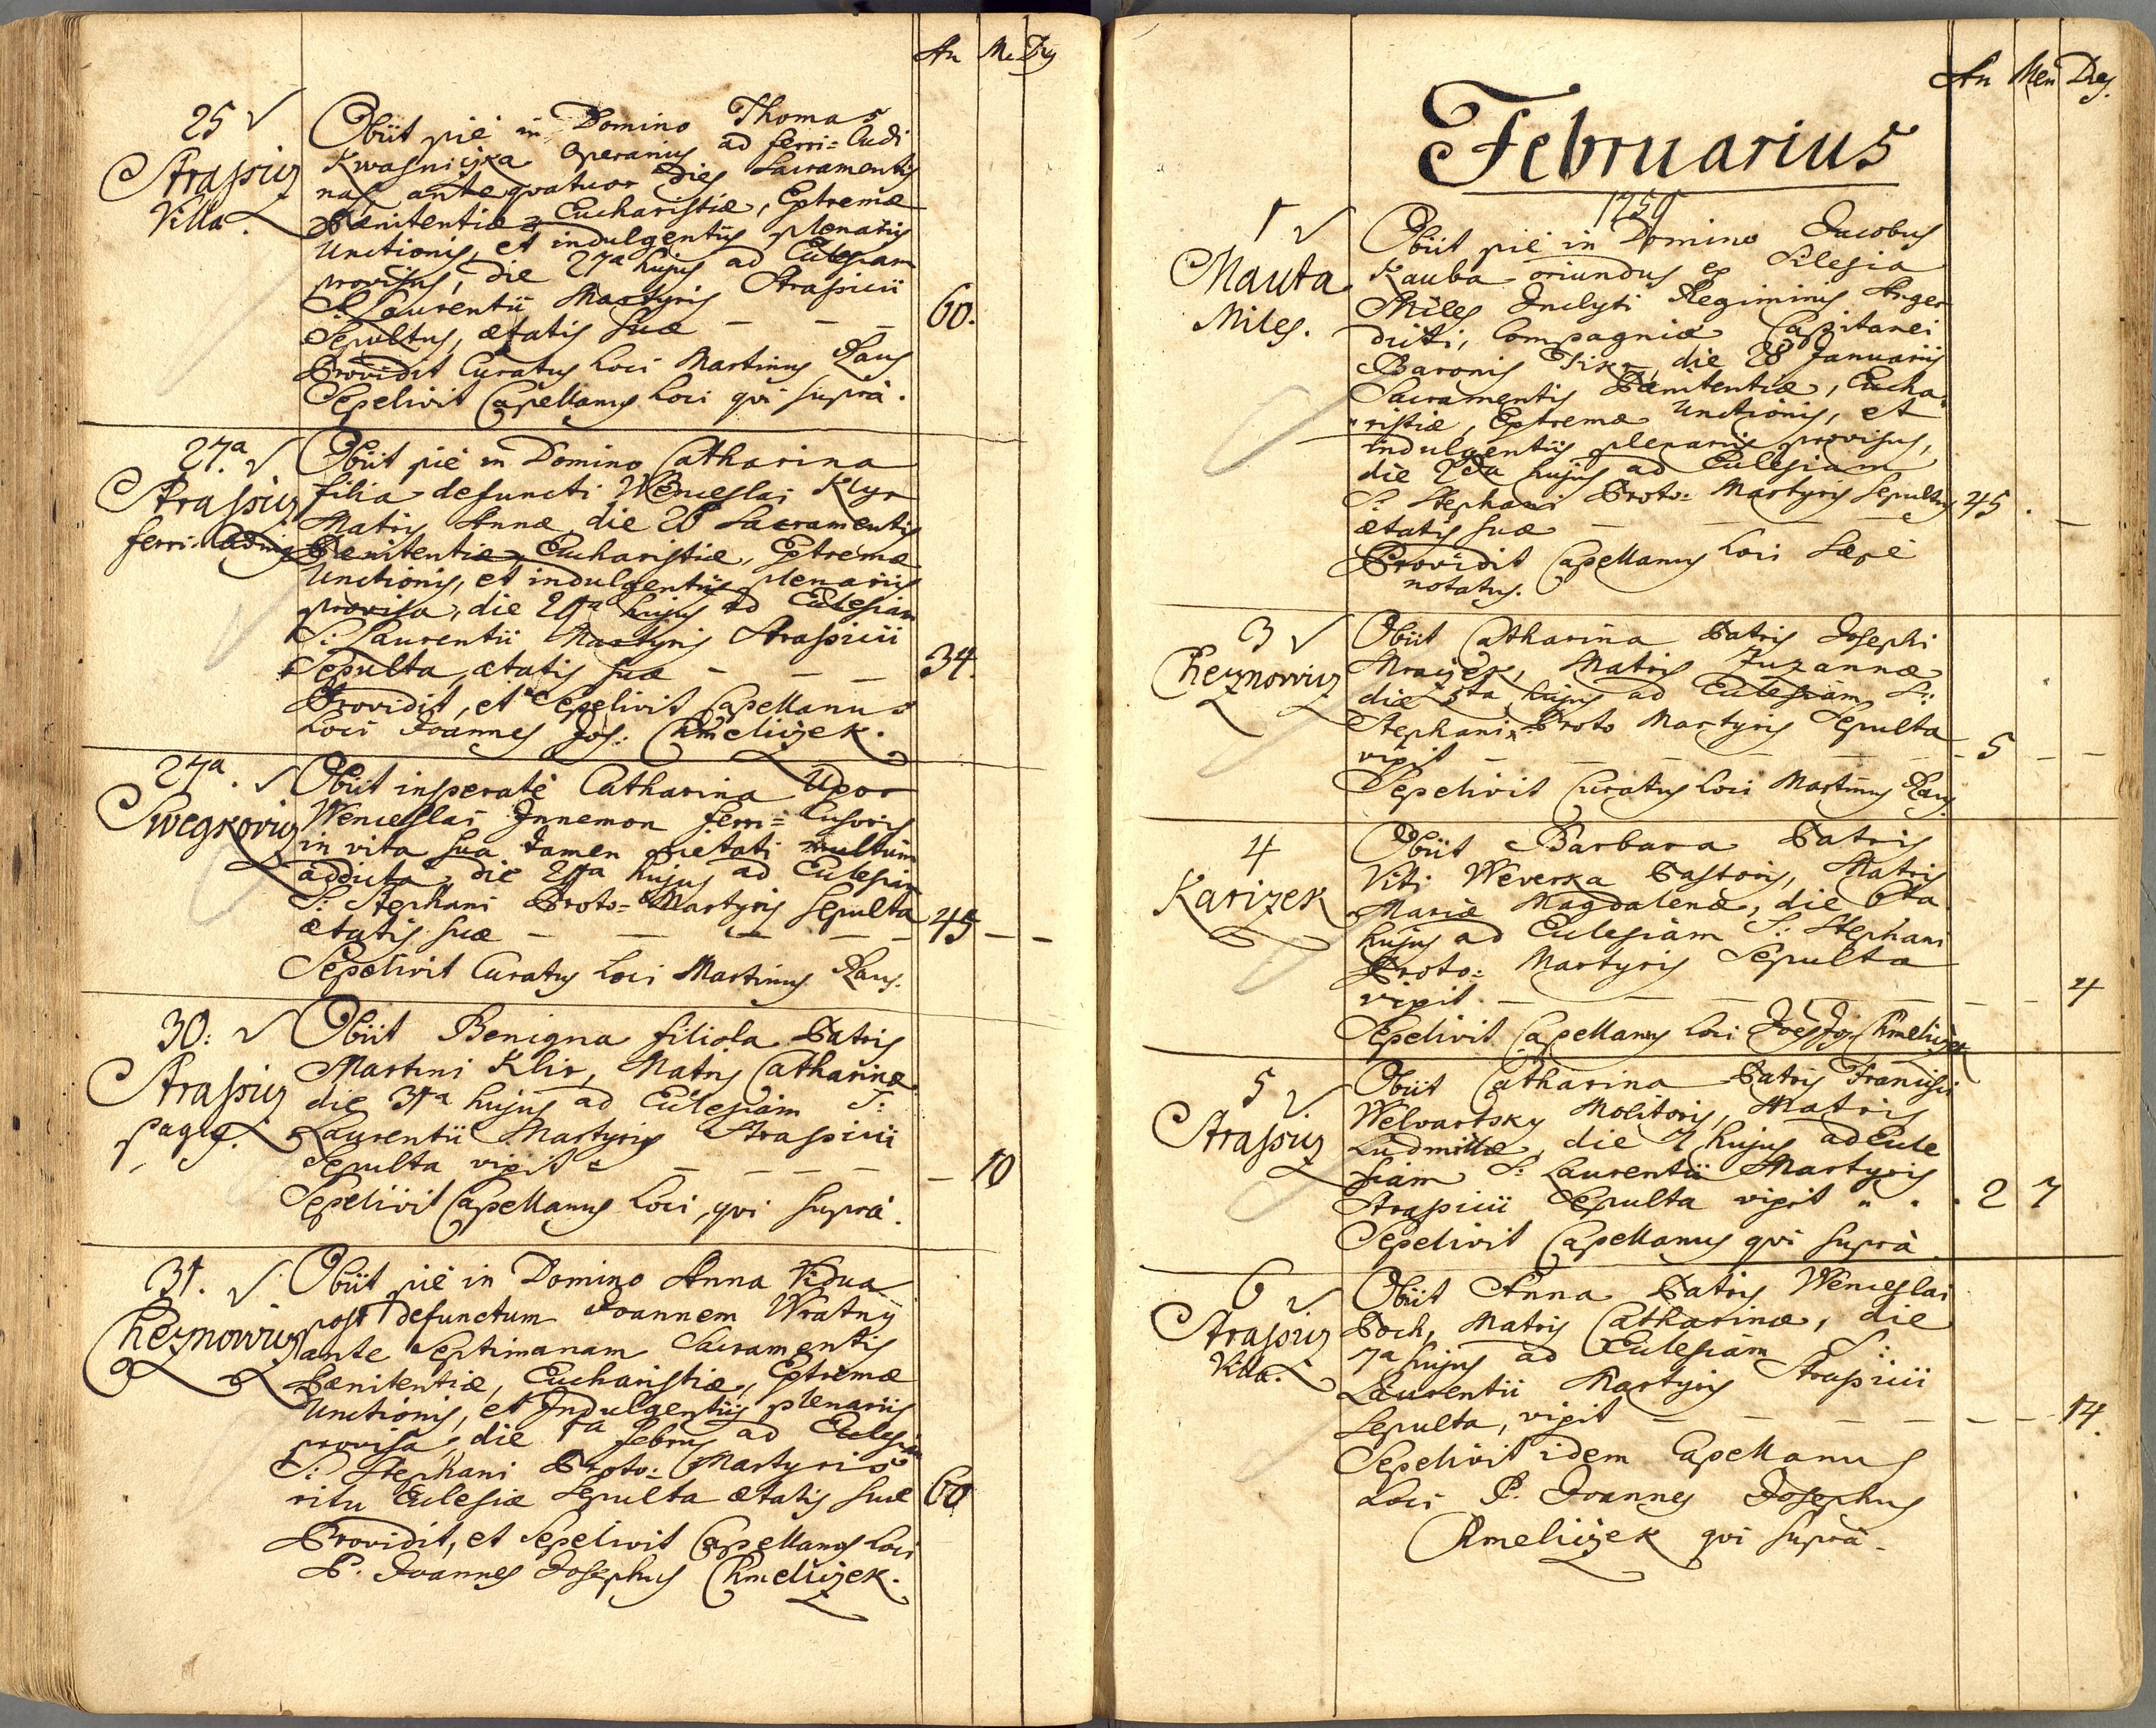 An Me Dies
25
Straszicz
Villa.
Obiit piè in Domino Thomas
Kwasniczka Operarius ad ferri=Cudi
nas, ante qvatuor Dies Sacramentis
Pænitentiæ, Eucharistiæ, Extremæ
Unctionis, et indulgentiis plenariis
provisus, die 27a hujus ad Ecclesiam
S. Laurentii Martyris Strassicii
Sepultus, ætatis suæ — — — 60.
Providit Curatus Loci Martinus Raus
Sepelivit Capellanus Loci qvi suprà.
27a.
Straszicz
ferri=
Obiit piè in Domino Catharina
filia defuncti Wenceslai Klyr
Matris Annæ, die 26 Sacramentis
Pænitentiæ, Eucharistiæ, Extremæ
Unctionis, et indulgentiis plenariis
provisa, die 29a hujus ad Ecclesiam
S: Laurentii Martyris Strassicii
Sepulta, ætatis suæ — — — 34.
Providit, et Sepelivit Capellanus
Loci Joannes Jos: Chmeliczek.
27a.
Swegkovicz
Obiit insperatè Catharina Uxor
Wenceslai Innemon ferri=Cusoris
in vita sua tamen pietati multum
addicta, die 29a hujus ad Ecclesiam
S: Stephani Proto=Martyris Sepulta
ætatis suæ — — — — — 45 — —
Sepelivit Curatus Loci Martinus Raus.
30:
Straszicz
pagus.
Obiit Benigna filiola Patris
Martini Klir, Matris Catharinæ
die 31a hujus ad Ecclesiam S:
Laurentii Martyris Strassicii
Sepulta vixit — — — — — 10
Sepelivit Capellanus Loci, qvi suprà.
31.
Cheznowicz
Obiit piè in Domino Anna Vidua
post defunctum Joannem Wratny
ante Septimanam Sacramentis
Pænitentiæ, Eucharistiæ, Extremæ
Unctionis, et Indulgentiis plenariis
provisa, die 1a febrii ad Ecclesiam
S: Stephani Proto=Martyris
ritu Ecclesiæ Sepulta ætatis suæ 60
Providit, et Sepelivit Capellanus Loci
P. Joannes Josephus Chmeliczek.
An Men Dies.
Februarius
1750
1
Mauta
Miles.
Obiit piè in Domino Jacobus
Kauba oriundus ex Silesia
Miles Inclyti Regiminis Anger
Compagniæ Capitanei
Baronis die 28 Januarii
Sacramentis Pænitentiæ, Eucha
ristiæ, Extremæ Unctionis, et
indulgentiis plenariis provisus,
die 2da hujus ad Ecclesiam
S: Stephani Proto=Martyris Sepultus 45. —
ætatis suæ — — — —
Providit Capellanus Loci Sæpè
notatus.
3
Cheznowicz
Obiit Catharina Patris Josephi
Mraczek, Matris Zuzannæ
die 5ta hujus ad Ecclesiam S:
Stephani Proto Martyris Sepulta
vixit — — — — — 5 —
Sepelivit Curatus Loci Martinus Raus
4
Karizek
Obiit Barbara Patris
Viti Weverka Pastoris, Matris
Mariæ Magdalenæ, die 6ta
hujus ad Ecclesiam S: Stephani
Proto=Martyris Sepulta
vixit. — — — — — — 4
Sepelivit Capellanus Loci Joes Jos: Chmeliczek
5
Straszicz
Obiit Catharina Patris Francisci
Welvartsky Molitoris, Matris
Ludmillæ, die 7 hujus ad Eccle
siam S: Laurentii Martyris
Strassicii Sepulta vixit 2 7
Sepelivit Capellanus qvi suprà
6
Straszicz
Villa.
Obiit Anna Patris Wenceslai
Poch, Matris Catharinæ, die
7a hujus ad Ecclesiam S:
Laurentii Martyris Strassicii
Sepulta, vixit — — — — — — 14.
Sepelivit idem Capellanus
Loci P. Joannes Josephus
Chmeliczek qvi suprà.